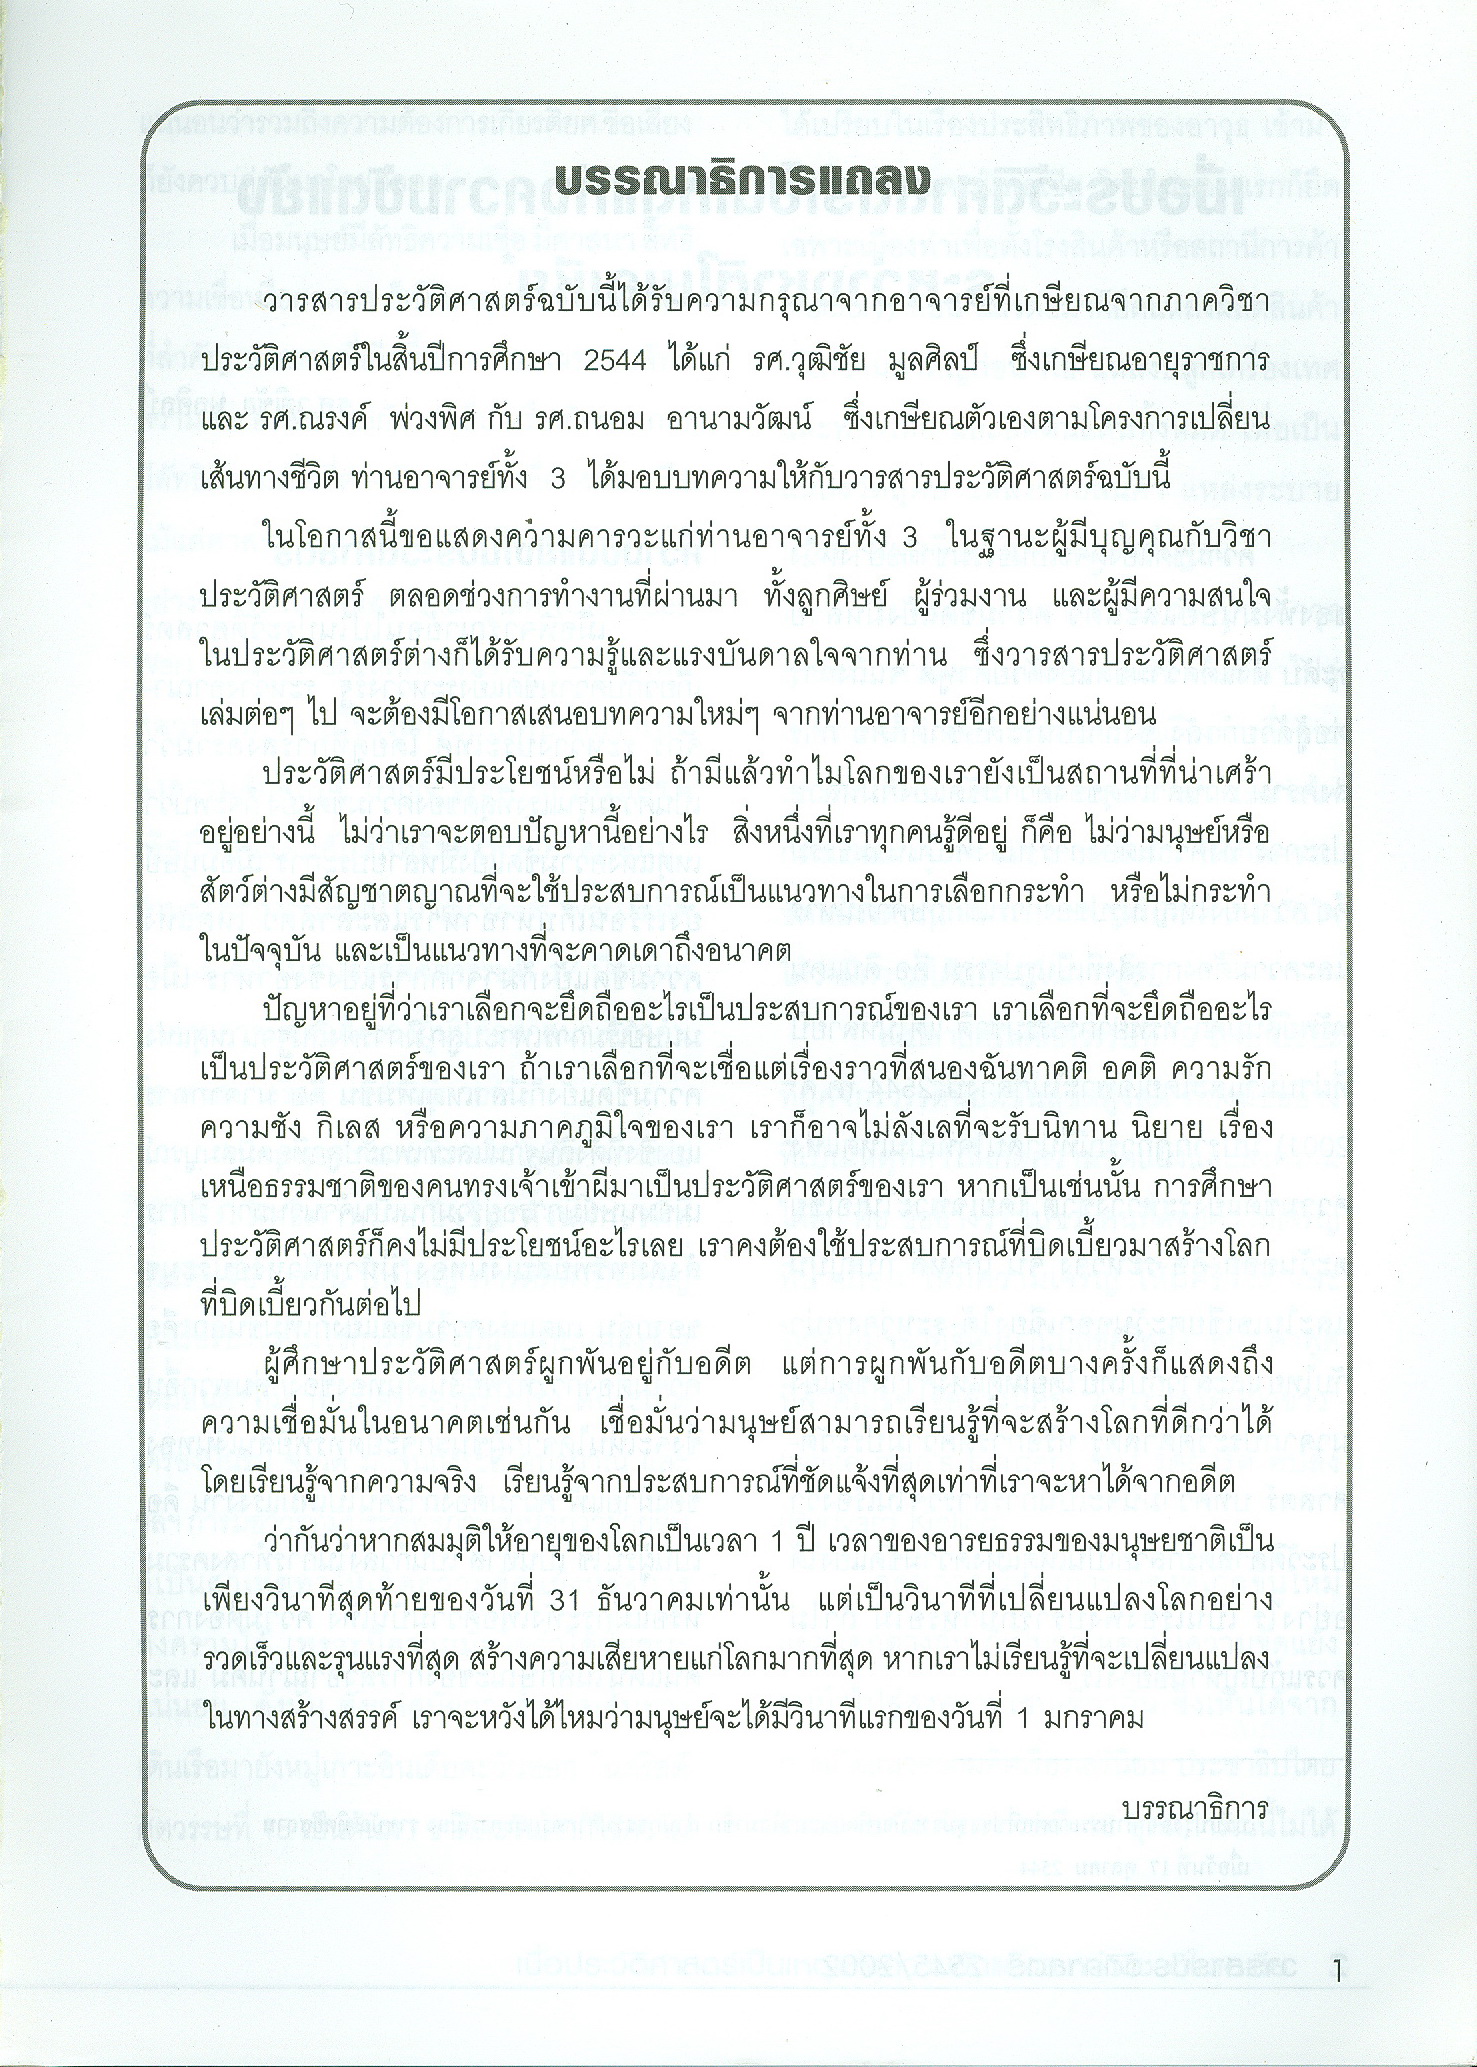 บรรณาธิการแถลง
วารสารประวัติศาสตร์ฉบับนี้ได้รับความกรุณาจากอาจารย์ที่เกษียณจากภาควิชา
ประวัติศาสตร์ในสิ้นปีการศึกษา 2544 ได้แก่ รศ.วุฒิชัย มูลศิลป์ ซึ่งเกษียณอายุราชการ
และ รศ.ณรงค์ พ่วงพิศ กับ รศ.ถนอม อานามวัฒน์ ซึ่งเกษียณตัวเองตามโครงการเปลี่ยน
เส้นทางชีวิต ท่านอาจารย์ทั้ง 3 ได้มอบบทความให้กับวารสารประวัติศาสตร์ฉบับนี้
ในโอกาสนี้ขอแสดงความคารวะแก่ท่านอาจารย์ทั้ง 3 ในฐานะผู้มีบุญคุณกับวิชา
ประวัติศาสตร์ ตลอดช่วงการทำงานที่ผ่านมา ทั้งลูกศิษย์ ผู้ร่วมงาน และผู้มีความสนใจ
ในประวัติศาสตร์ต่างก็ได้รับความรู้และแรงบันดาลใจจากท่าน ซึ่งวารสารประวัติศาสตร์
เล่มต่อๆ ไป จะต้องมีโอกาสเสนอบทความใหม่ๆ จากท่านอาจารย์อีกอย่างแน่นอน
ประวัติศาสตร์มีประโยชน์หรือไม่ ถ้ามีแล้วทำไมโลกของเรายังเป็นสถานที่ที่น่าเศร้า
อยู่อย่างนี้ ไม่ว่าเราจะตอบปัญหานี้อย่างไร สิ่งหนึ่งที่เราทุกคนรู้ดีอยู่ ก็คือ ไม่ว่ามนุษย์หรือ
สัตว์ต่างมีสัญชาตญาณที่จะใช้ประสบการณ์เป็นแนวทางในการเลือกกระทำ หรือไม่กระทำ
ในปัจจุบัน และเป็นแนวทางที่จะคาดเดาถึงอนาคต
ปัญหาอยู่ที่ว่าเราเลือกจะยึดถืออะไรเป็นประสบการณ์ของเรา เราเลือกที่จะยึดถืออะไร
เป็นประวัติศาสตร์ของเรา ถ้าเราเลือกที่จะเชื่อแต่เรื่องราวที่สนองฉันทาคติ อคติ ความรัก
ความชัง กิเลส หรือความภาคภูมิใจของเรา เราก็อาจไม่ลังเลที่จะรับนิทาน นิยาย เรื่อง
เหนือธรรมชาติของคนทรงเจ้าเข้าผีมาเป็นประวัติศาสตร์ของเรา หากเป็นเช่นนั้น การศึกษา
ประวัติศาสตร์ก็คงไม่มีประโยชน์อะไรเลย เราคงต้องใช้ประสบการณ์ที่บิดเบี้ยวมาสร้างโลก
ที่บิดเบี้ยวกันต่อไป
ผู้ศึกษาประวัติศาสตร์ผูกพันอยู่กับอดีต แต่การผูกพันกับอดีตบางครั้งก็แสดงถึง
ความเชื่อมั่นในอนาคตเช่นกัน เชื่อมั่นว่ามนุษย์สามารถเรียนรู้ที่จะสร้างโลกที่ดีกว่าได้
โดยเรียนรู้จากความจริง เรียนรู้จากประสบการณ์ที่ชัดแจ้งที่สุดเท่าที่เราจะหาได้จากอดีต
ว่ากันว่าหากสมมุติให้อายุของโลกเป็นเวลา 1 ปี เวลาของอารยธรรมของมนุษยชาติเป็น
เพียงวินาทีสุดท้ายของวันที่ 31 ธันวาคมเท่านั้น แต่เป็นวินาทีที่เปลี่ยนแปลงโลกอย่าง
รวดเร็วและรุนแรงที่สุด สร้างความเสียหายแก่โลกมากที่สุด หากเราไม่เรียนรู้ที่จะเปลี่ยนแปลง
ในทางสร้างสรรค์ เราจะหวังได้ไหมว่ามนุษย์จะได้มีวินาทีแรกของวันที่ 1 มกราคม
บรรณาธิการ
1